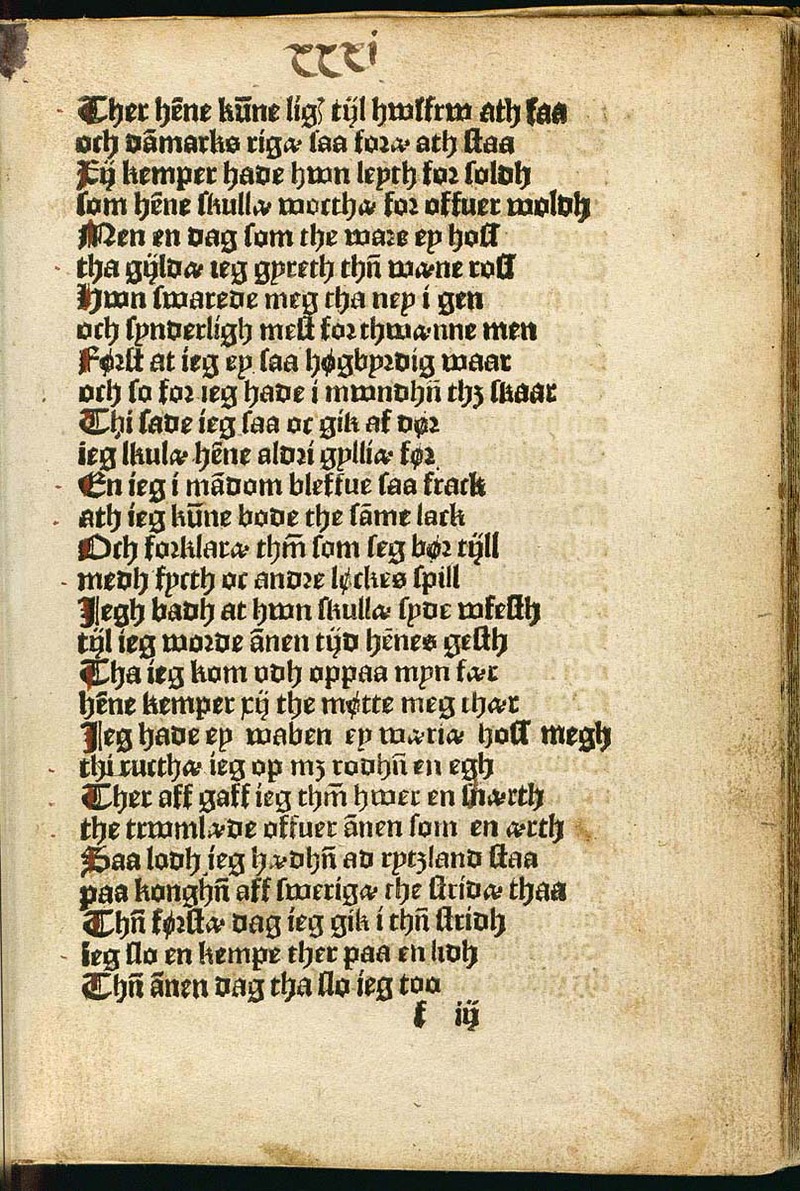 xxxi
Ther hēne kūne lig⁊ tijl hwsfrw ath faa
och dāmarks rigæ saa foræ ath staa
Xij kemper hade hwn leyth for soldh
som hēne skullæ worthæ for offuer woldh
Men en dag som the ware ey hoss
tha gijldæ ieg gyreth thn̄ wæne ross
Hwn swarede meg tha ney i gen
och synderligh mest for thwænne men
Først at ieg ey saa høgbyrdig waar
och so for ieg hade i mwndhn̄ thꝫ skaar
Thi sade ieg saa oc gik af dør
ieg skulæ hēne aldri gylliæ før
En ieg i mādom bleffue saa frack
ath ieg kūne bode the sāme lack
Och forklaræ thm̄ som seg bør tijll
medh fycth oc andre løckes spill
Jegh badh at hwn skullæ syde wfesth
tijl ieg worde ānen tijd hēnes gesth
Tha ieg kom vdh oppaa myn fær
hēne kemper xij the møtte meg thær
Jeg hade ey waben ey wæriæ hoss megh
thi rycthæ ieg op mꝫ rodhn̄ en egh
Ther aff gaff ieg thm̄ hwer en snærth
the trwmlæde offuer ānen som en ærth
Saa lodh ieg hædhn̄ ad rytzland staa
paa konghn̄ aff swerigæ the stridæ thaa
Thn̄ førstæ dag ieg gik i thn̄ stridh
ieg slo en kempe ther paa en lidh
Thn̄ ānen dag tha slo ieg too
f iij